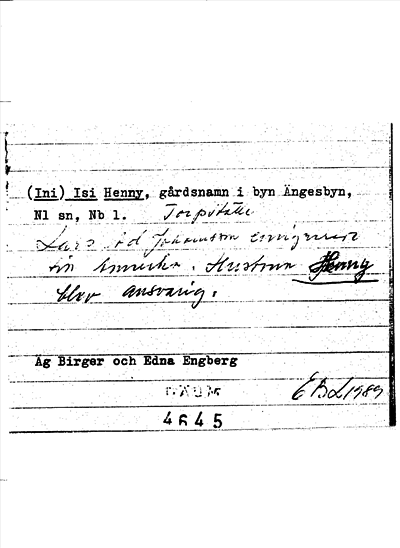 (Ini) Isi Henny, gårdsnamn i byn Ängesbyn,
Nl sn, Nb 1. Torpställe
Lars Johansson emigrerat
till Amerika. Hustrun Henny
blev ansvarig.
Ag Birger och Edna Engberg
DAUM EBL 1989
4645